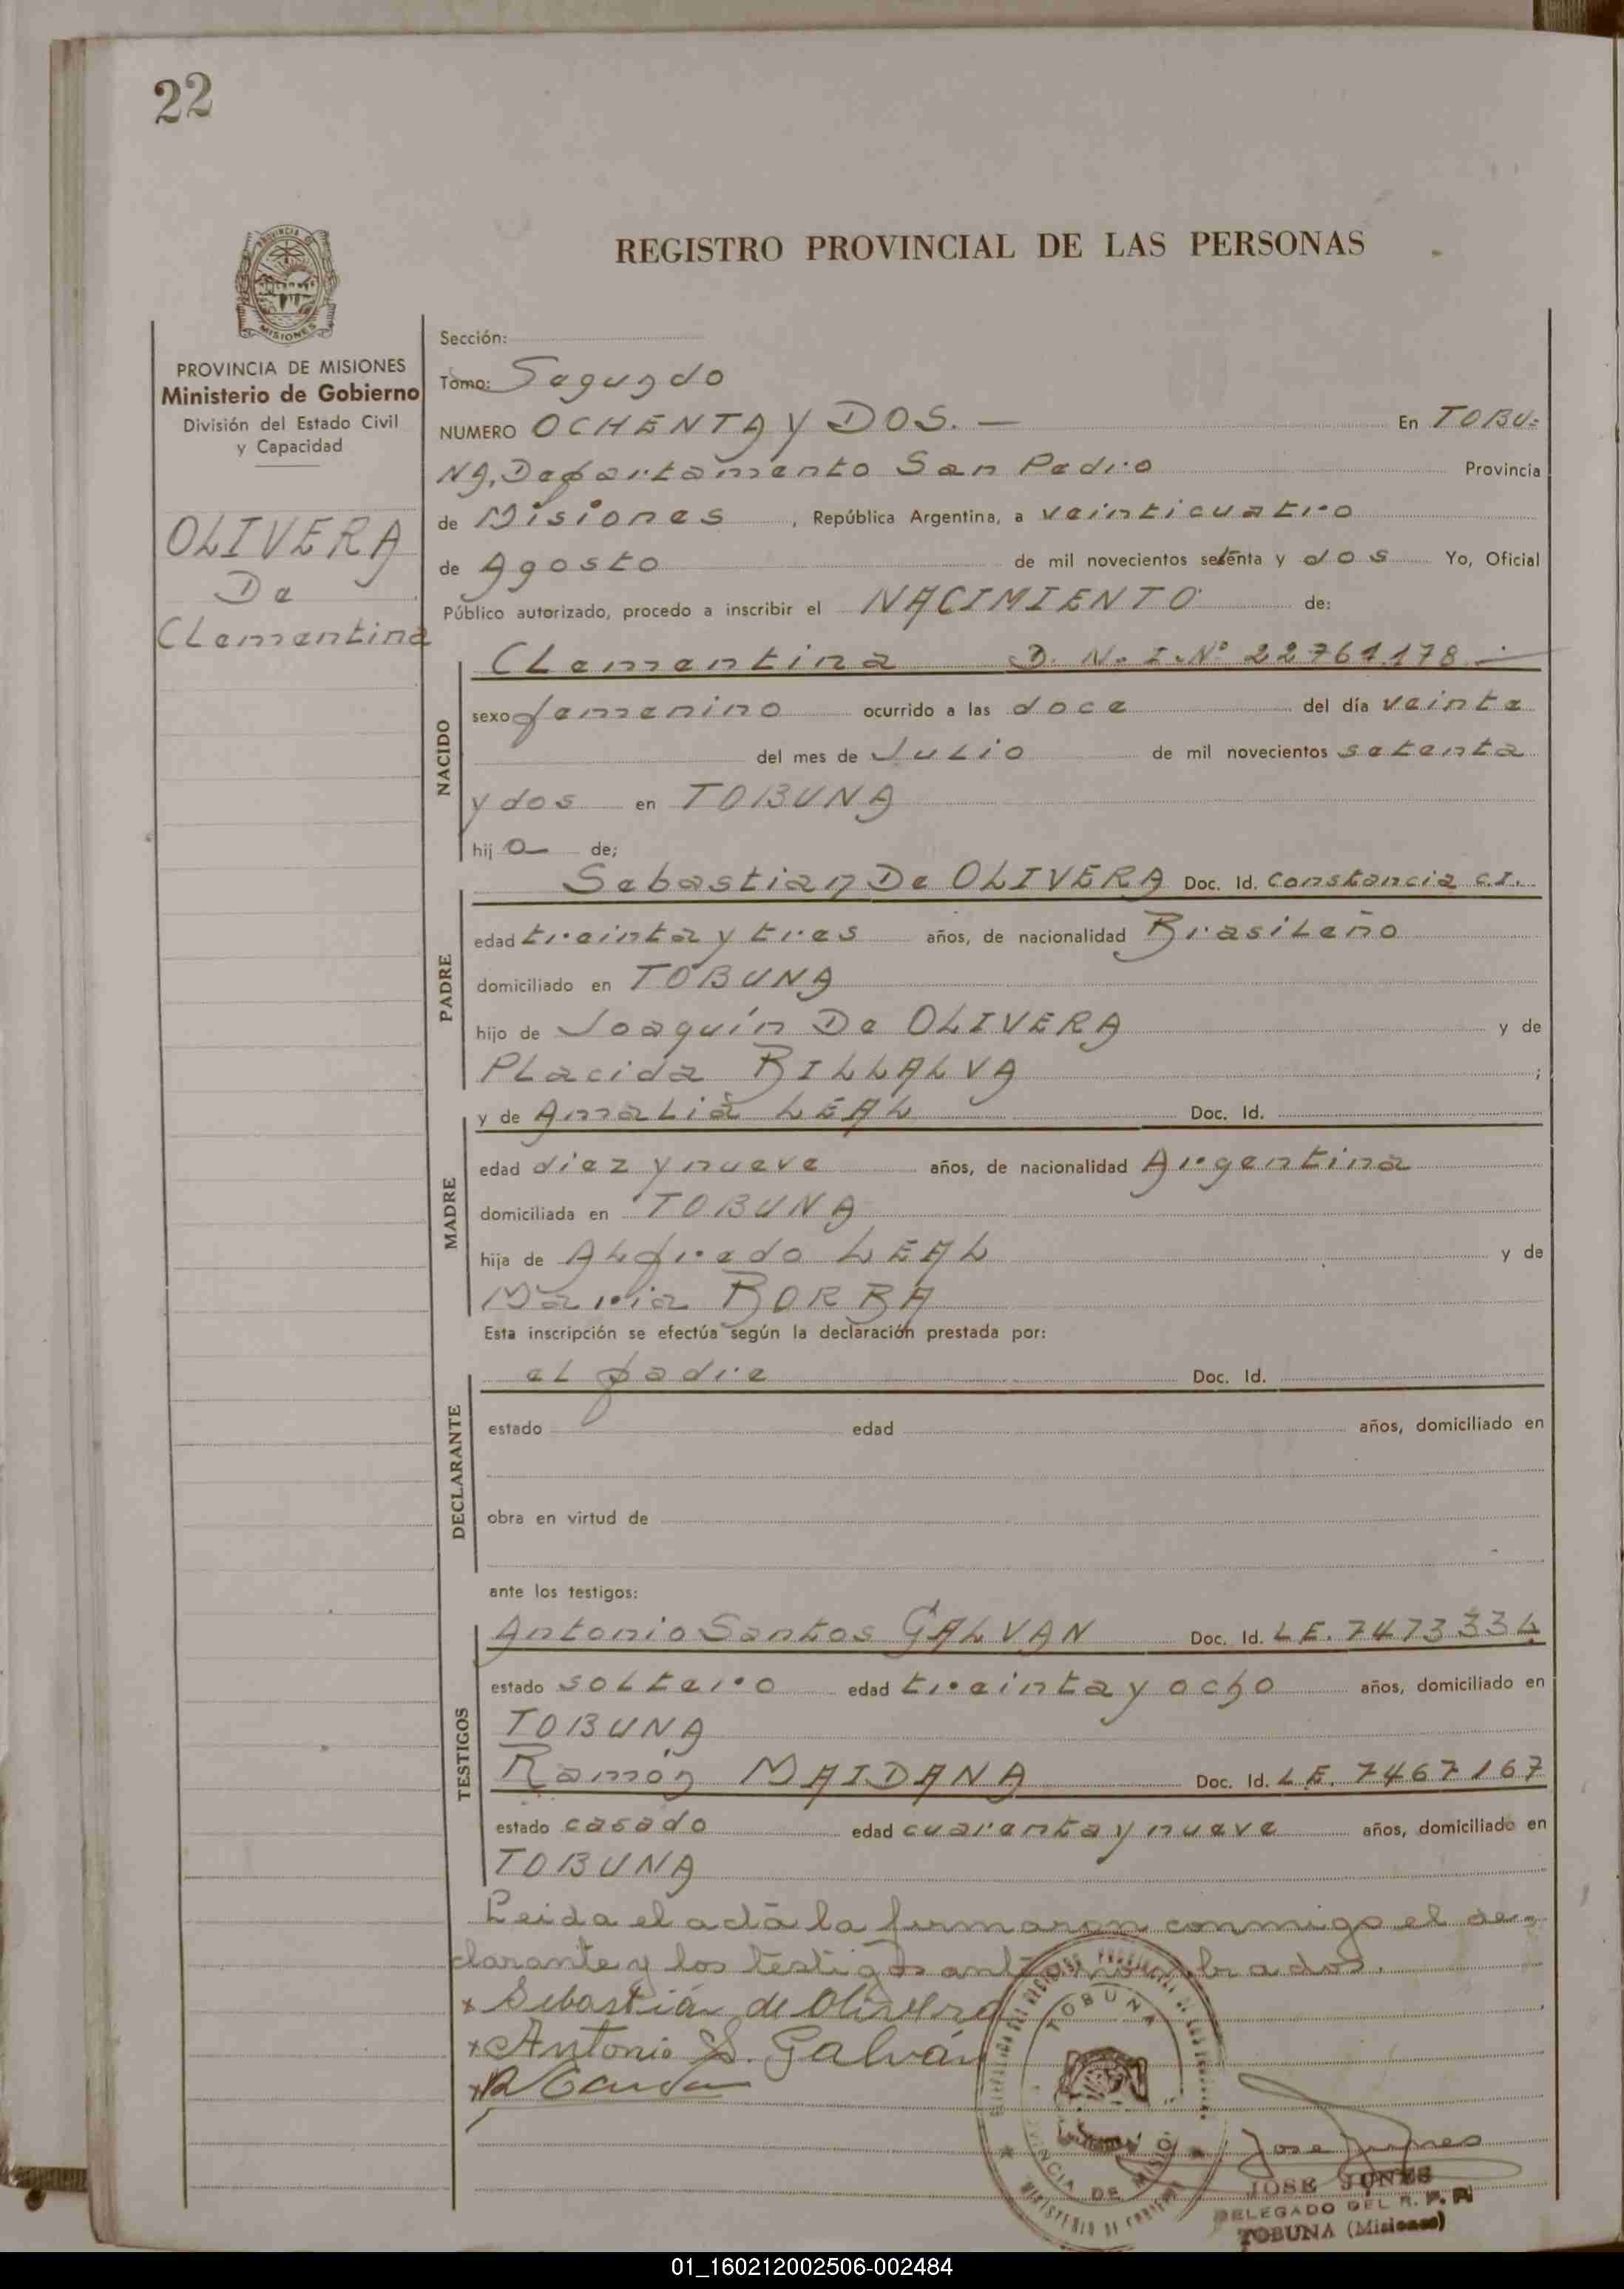 22
REGISTRO PROVINCIAL DE LAS PERSONAS
PROVINCIA DE MISIONES
Ministerio de Gobierno
División del Estado Civil
y Capacidad
OLIVERA
De
Clementina
Sección:
Tomo: Segundo
NUMERO OCHENTA Y DOS. — En TOBU=
NA, Departamento San Pedro Provincia
de Misiones, República Argentina, a veinticuatro
de Agosto de mil novecientos setenta y dos Yo, Oficial
Público autorizado, procedo a inscribir el NACIMIENTO de:
NACIDO
Clementina D. N. I. Nº 22761.178.—
sexo femenino ocurrido a las doce del día veinte
del mes de Julio de mil novecientos setenta
y dos en TOBUNA
hija de;
PADRE
Sebastian De OLIVERA Doc. Id. Constancia C.I.
edad treinta y tres años, de nacionalidad Brasileño
domiciliado en TOBUNA
hijo de Joaquín De OLIVERA y de
Placida BILLALVA ;
MADRE
y de Amalia LEAL Doc. Id.
edad diez y nueve años, de nacionalidad Argentina
domiciliada en TOBUNA
hija de Alfredo LEAL y de
Maria BORBA
Esta inscripción se efectúa según la declaración prestada por:
DECLARANTE
el padre Doc. Id.
estado edad años, domiciliado en
obra en virtud de
ante los testigos:
TESTIGOS
Antonio Santos GALVAN Doc. Id. L.E. 7473334
estado soltero edad treinta y ocho años, domiciliado en
TOBUNA
Ramón MAIDANA Doc. Id. L.E. 7467167
estado casado edad cuarenta y nueve años, domiciliado en
TOBUNA
Leida el acta la firmaron conmigo el de=
clarante y los testigos antes nombrados.
x Sebastián de Olivera
x Antonio S. Galván
TOBUNA
Jose Junes
JOSE JUNES
DELEGADO DEL R. P. P.
TOBUNA (Misiones)
01_160212002506-002484